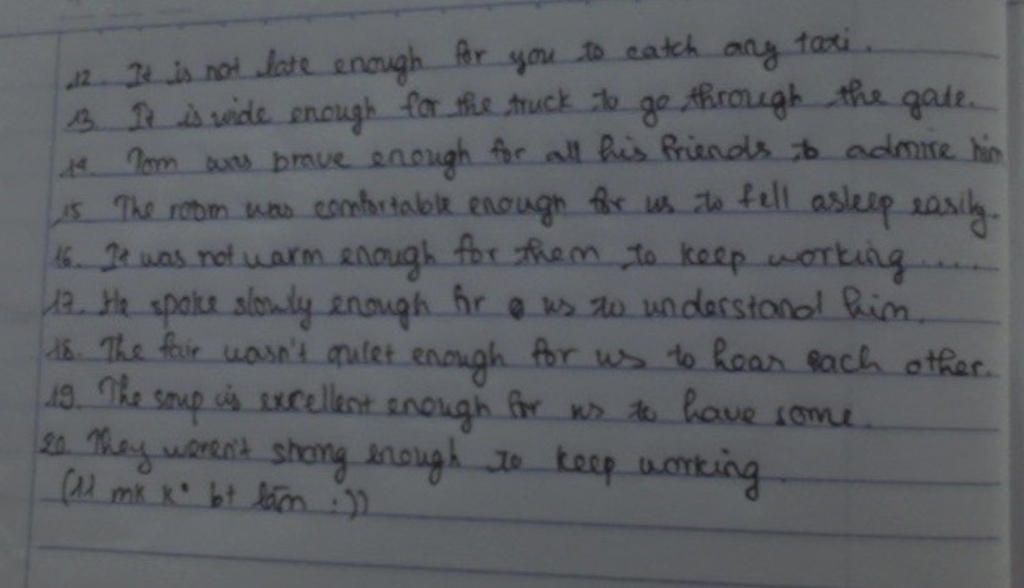 12. It is not late enough for you to catch any taxi.
13. It is wide enough for the truck to go through the gate.
14. Tom was brave enough for all his friends to admire him
15. The room was comfortable enough for us to fell asleep easily.
16. It was not warm enough for them to keep working.....
17. He spoke slowly enough for us to understand him.
18. The fair wasn't quiet enough for us to hear each other.
19. The soup is excellent enough for us to have some.
20. They weren't strong enough to keep working.
(11 mk k° bt làm :))